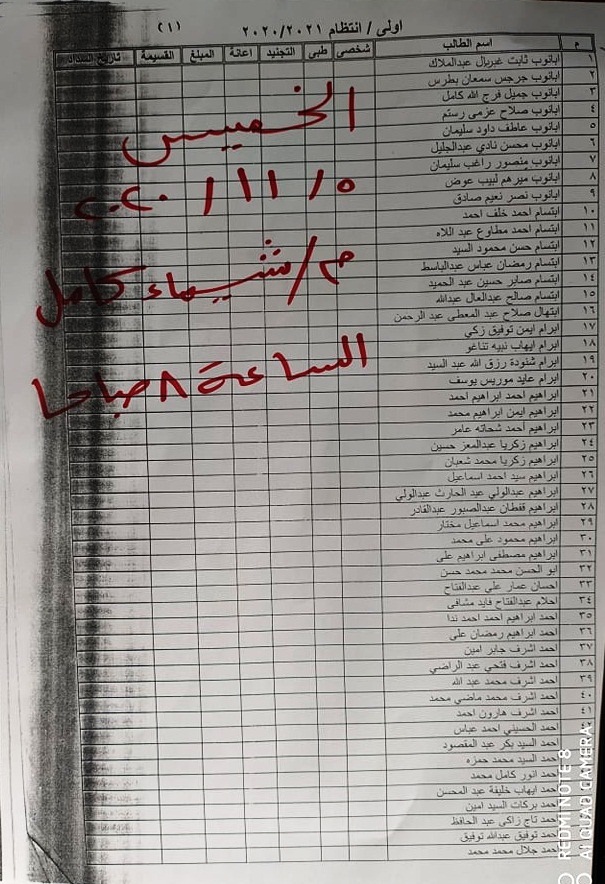 اولى / انتظام ٢٠٢٠/٢٠٢١ (١)
م اسم الطالب شخصى طبى التجنيد اعانة المبلغ القسيمة تاريخ السداد
١ ابانوب ثابت غبريال عبدالملاك
٢ ابانوب جرجس سمعان بطرس
٣ ابانوب جميل فرج الله كامل
٤ ابانوب صلاح عزمى رستم
٥ ابانوب عاطف داود سليمان
٦ ابانوب محسن نادي عبدالجليل
٧ ابانوب منصور راغب سليمان
٨ ابانوب ميرهم لبيب عوض
٩ ابانوب نصر نعيم صادق
١٠ ابتسام احمد خلف احمد
١١ ابتسام احمد مطاوع عبد اللاه
١٢ ابتسام حسن محمود السيد
١٣ ابتسام رمضان عباس عبدالباسط
١٤ ابتسام صابر حسين عبد الحميد
١٥ ابتسام صالح عبدالعال عبدالله
١٦ ابتهال صلاح عبد المعطي عبد الرحمن
١٧ ابرام ايمن توفيق زكي
١٨ ابرام ايهاب نبيه تناغو
١٩ ابرام شنودة رزق الله عبد السيد
٢٠ ابرام عايد موريس يوسف
٢١ ابراهيم احمد ابراهيم احمد
٢٢ ابراهيم ايمن ابراهيم محمد
٢٣ ابراهيم أحمد شحاته عامر
٢٤ ابراهيم زكريا عبدالمعز حسين
٢٥ ابراهيم زكريا محمد شعبان
٢٦ ابراهيم سيد احمد اسماعيل
٢٧ ابراهيم عبدالولي عبد الحارث عبدالولي
٢٨ ابراهيم قفطان عبدالصبور عبدالقادر
٢٩ ابراهيم محمد اسماعيل مختار
٣٠ ابراهيم محمود على محمد
٣١ ابراهيم مصطفى ابراهيم على
٣٢ ابو الحسن محمد محمد حسن
٣٣ احسان عمار علي عبدالفتاح
٣٤ احلام عبدالفتاح فايد مشافى
٣٥ احمد ابراهيم احمد احمد ندا
٣٦ احمد ابراهيم رمضان على
٣٧ احمد اشرف جابر امين
٣٨ احمد اشرف فتحي عبد الراضي
٣٩ احمد اشرف محمد عبد الله
٤٠ احمد اشرف محمد ماضي محمد
٤١ احمد اشرف هارون احمد
احمد الحسيني احمد عباس
احمد السيد بكر عبد المقصود
احمد السيد محمد حمزه
احمد انور كامل محمد
احمد ايهاب خليفة عبد المحسن
احمد بركات السيد امين
احمد تاج زاكي عبد الحافظ
احمد توفيق عبدالله توفيق
احمد جلال محمد محمد
الخميس
٥ / ١١ / ٢٠٢٠
م/ شيماء كامل
الساعة ٨ صباحا
REDMI NOTE 8
AI QUAD CAMERA